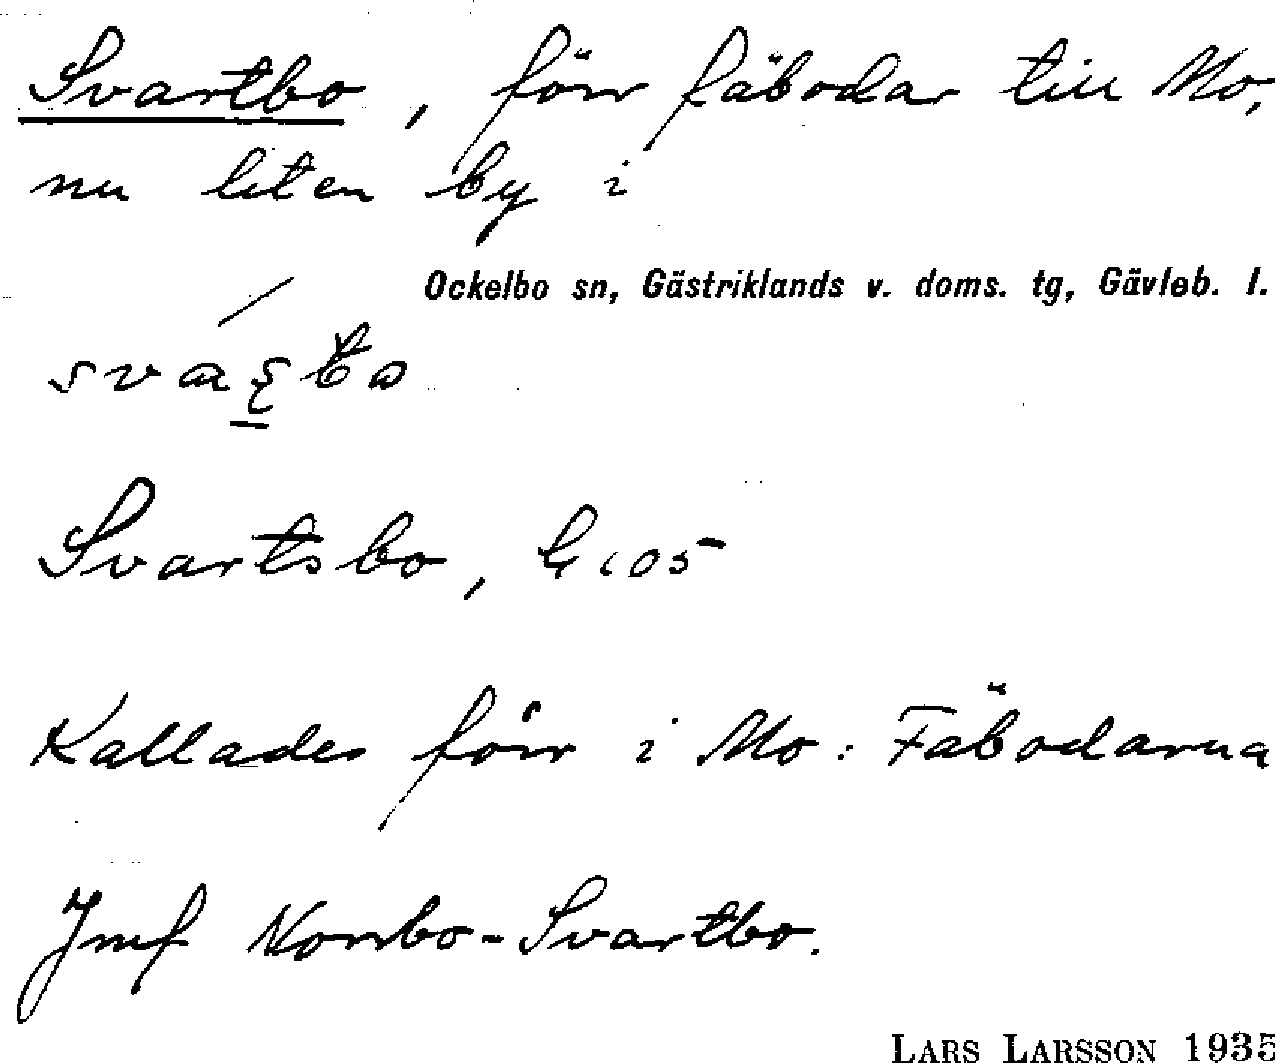 Svartbo, förr fäbodar till Mo,
nu liten by i
Ockelbo sn, Gästriklands v. doms. tg, Gävleb. l.
Svartsbo, G 105
Kallades förr i Mo: Fäbodarna
Jmf Norrbo-Svartbo.
LARS LARSSON 1935